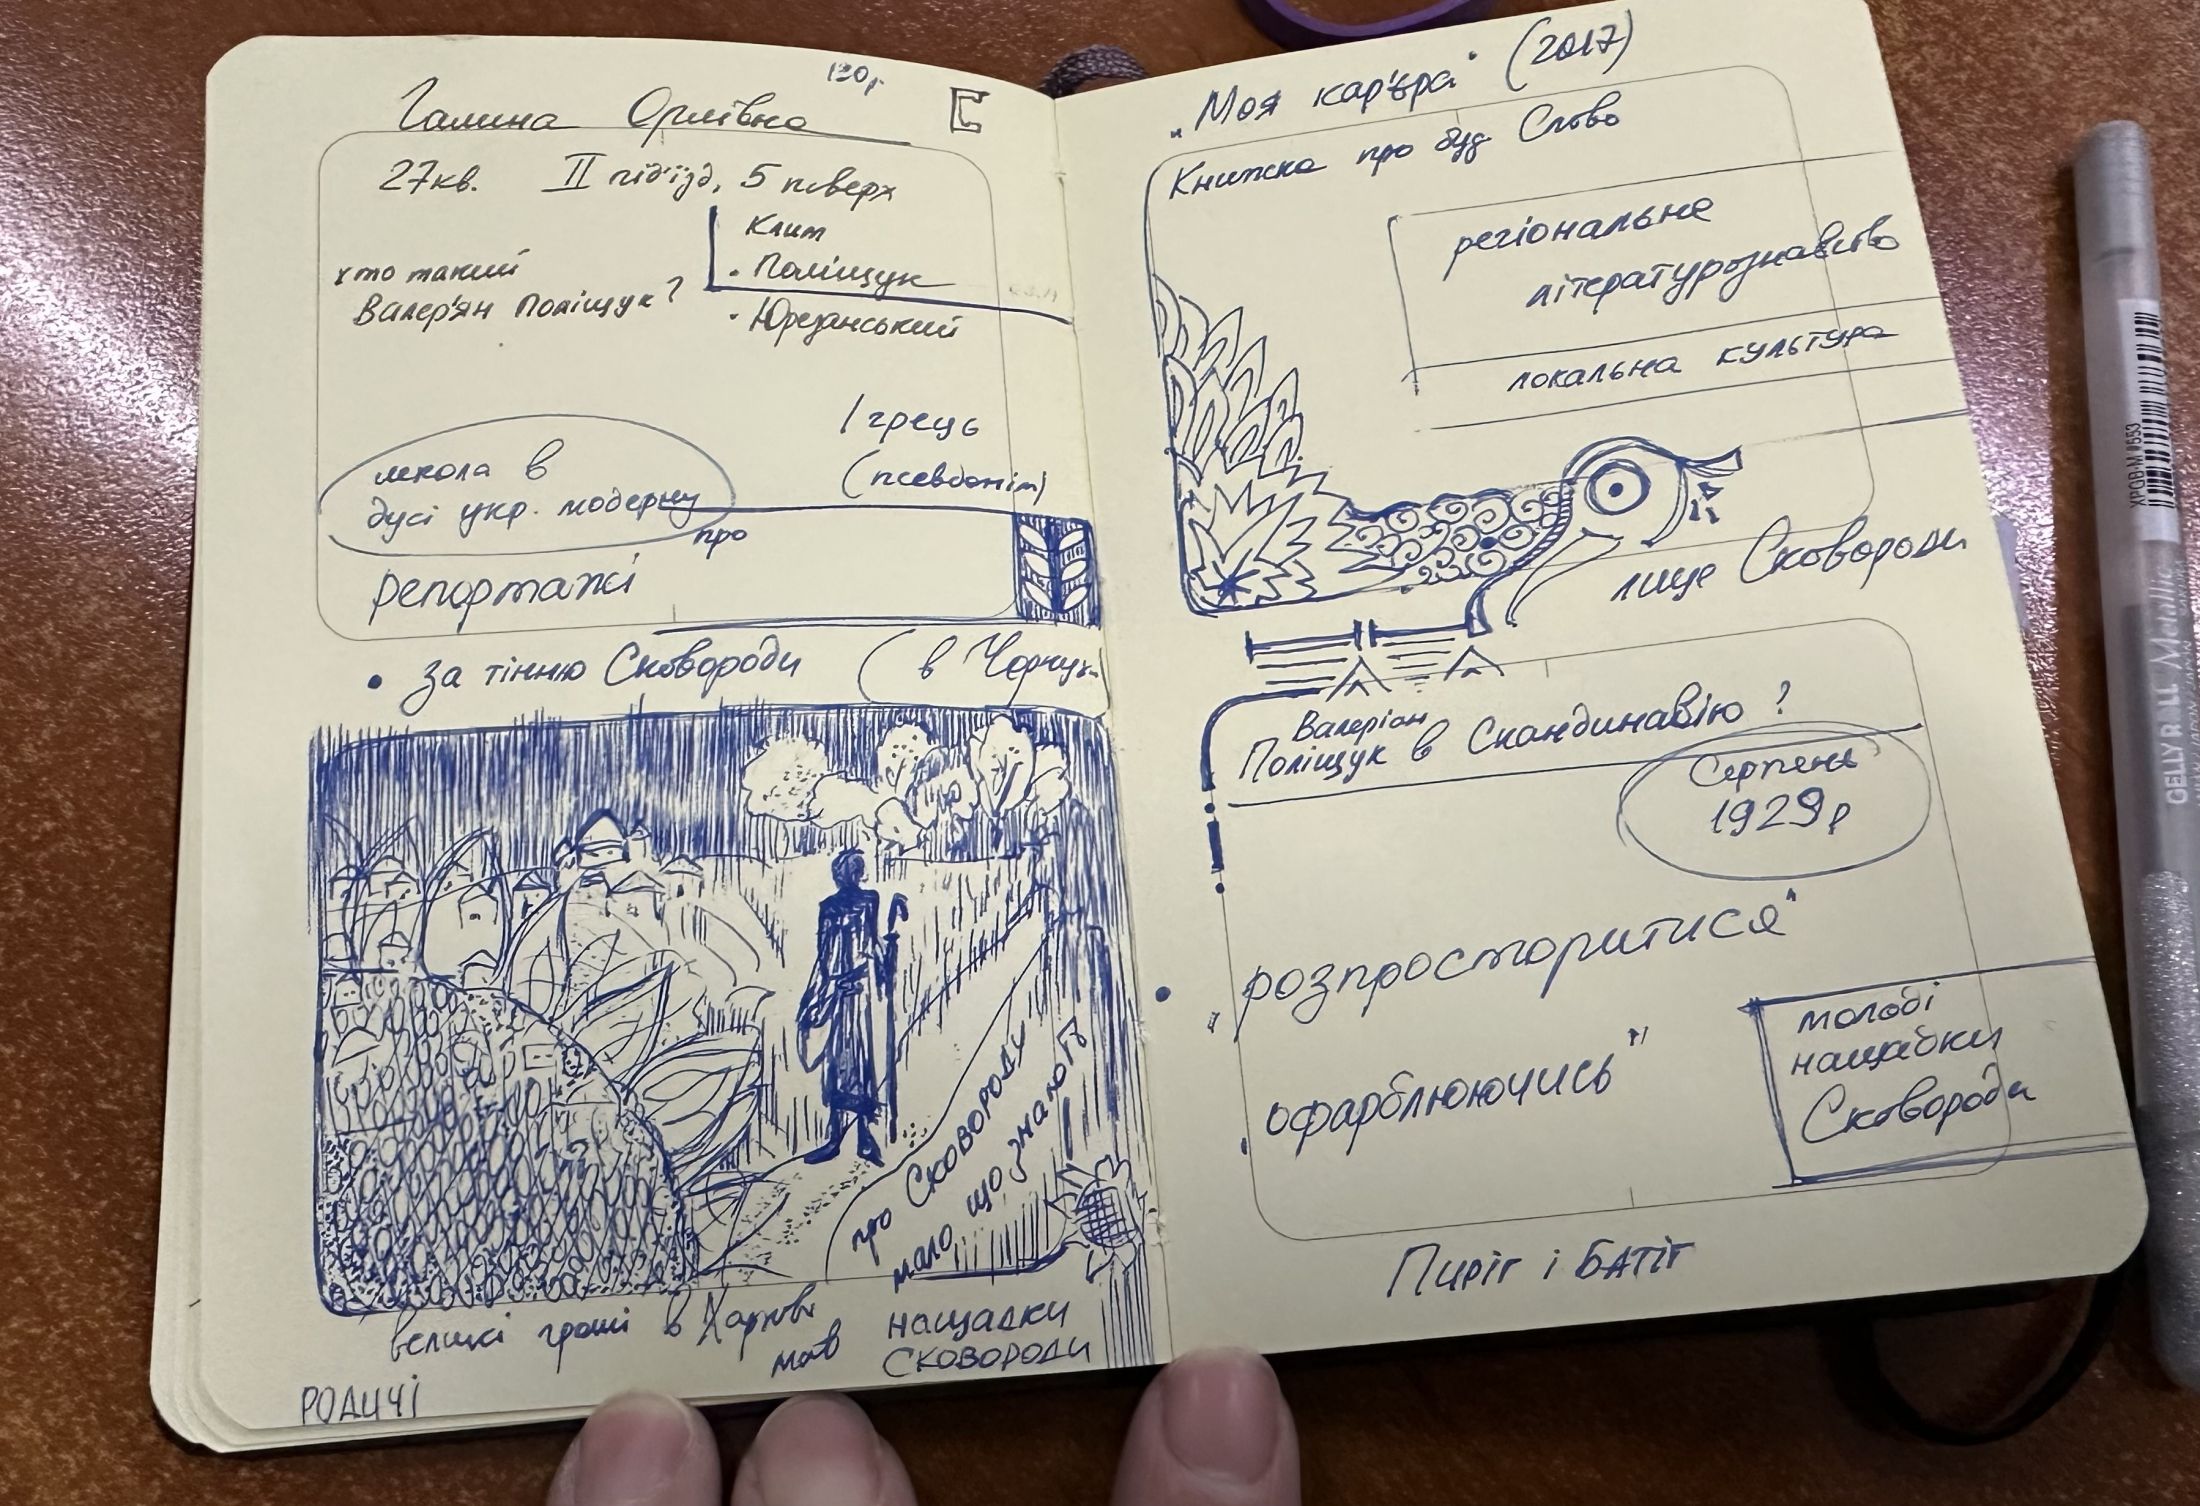 130р
Галина Орлівна
27кв. II під'їзд, 5 поверх
Клим
• Поліщук
• Юрезанський
хто такий
Валер'ян Поліщук?
Ігрець
(псевдонім)
школа в
дусі укр. модерну
про
репортажі
• за тінню Сковороди (в Чорнухи
про Сковороду"
мало що знають
великі гроші в Харкові
мав
нащадки
Сковороди
РОДИЧІ
„Моя кар'єра" (2017)
Книжка про буд Слово
регіональне
літературознавство
локальна культура
лице Сковороди
Валеріан
Поліщук в Скандинавію?
Серпень
1929р
„розпросторитися"
„офарблюючись"
молоді
нащадки
Сковороди
Пиріг і Батіг
XPGB-M #553
GELLY ROLL Metallic